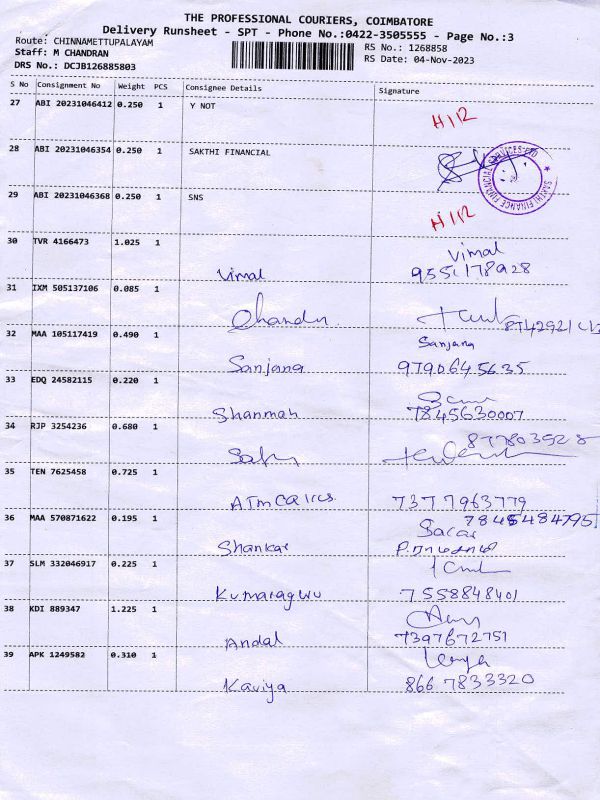 THE PROFESSIONAL COURIERS, COIMBATORE
Delivery Runsheet - SPT - Phone No.:0422-3505555 - Page No.:3
Route: CHINNAMETTUPALAYAM
RS No.: 1268858
Staff: M CHANDRAN
RS Date: 04-Nov-2023
DRS No.: DCJB126885803
S No Consignment No Weight PCS Consignee Details Signature
27 ABI 20231046412 0.250 1 Y NOT
H112
28 ABI 20231046354 0.250 1 SAKTHI FINANCIAL
SAKTHI FINANCE FINANCIAL SERVICES LTD
29 ABI 20231046368 0.250 1 SNS
H112
30 TVR 4166473 1.025 1
Vimal
Vimal 9551178928
31 IXM 505137106 0.085 1
Chandru
32 MAA 105117419 0.490 1
Sanjana
Sanjana 9790645635
33 EDQ 24582115 0.220 1
Shanmah 7845630007
34 RJP 3254236 0.680 1
877803928
35 TEN 7625458 0.725 1
7377963779
36 MAA 570871622 0.195 1
7845484795
Shankar
37 SLM 332046917 0.225 1
Kumaraguru 7558848401
38 KDI 889347 1.225 1
Andal 7397672751
39 APK 1249582 0.310 1
Kaviya 866 7833320